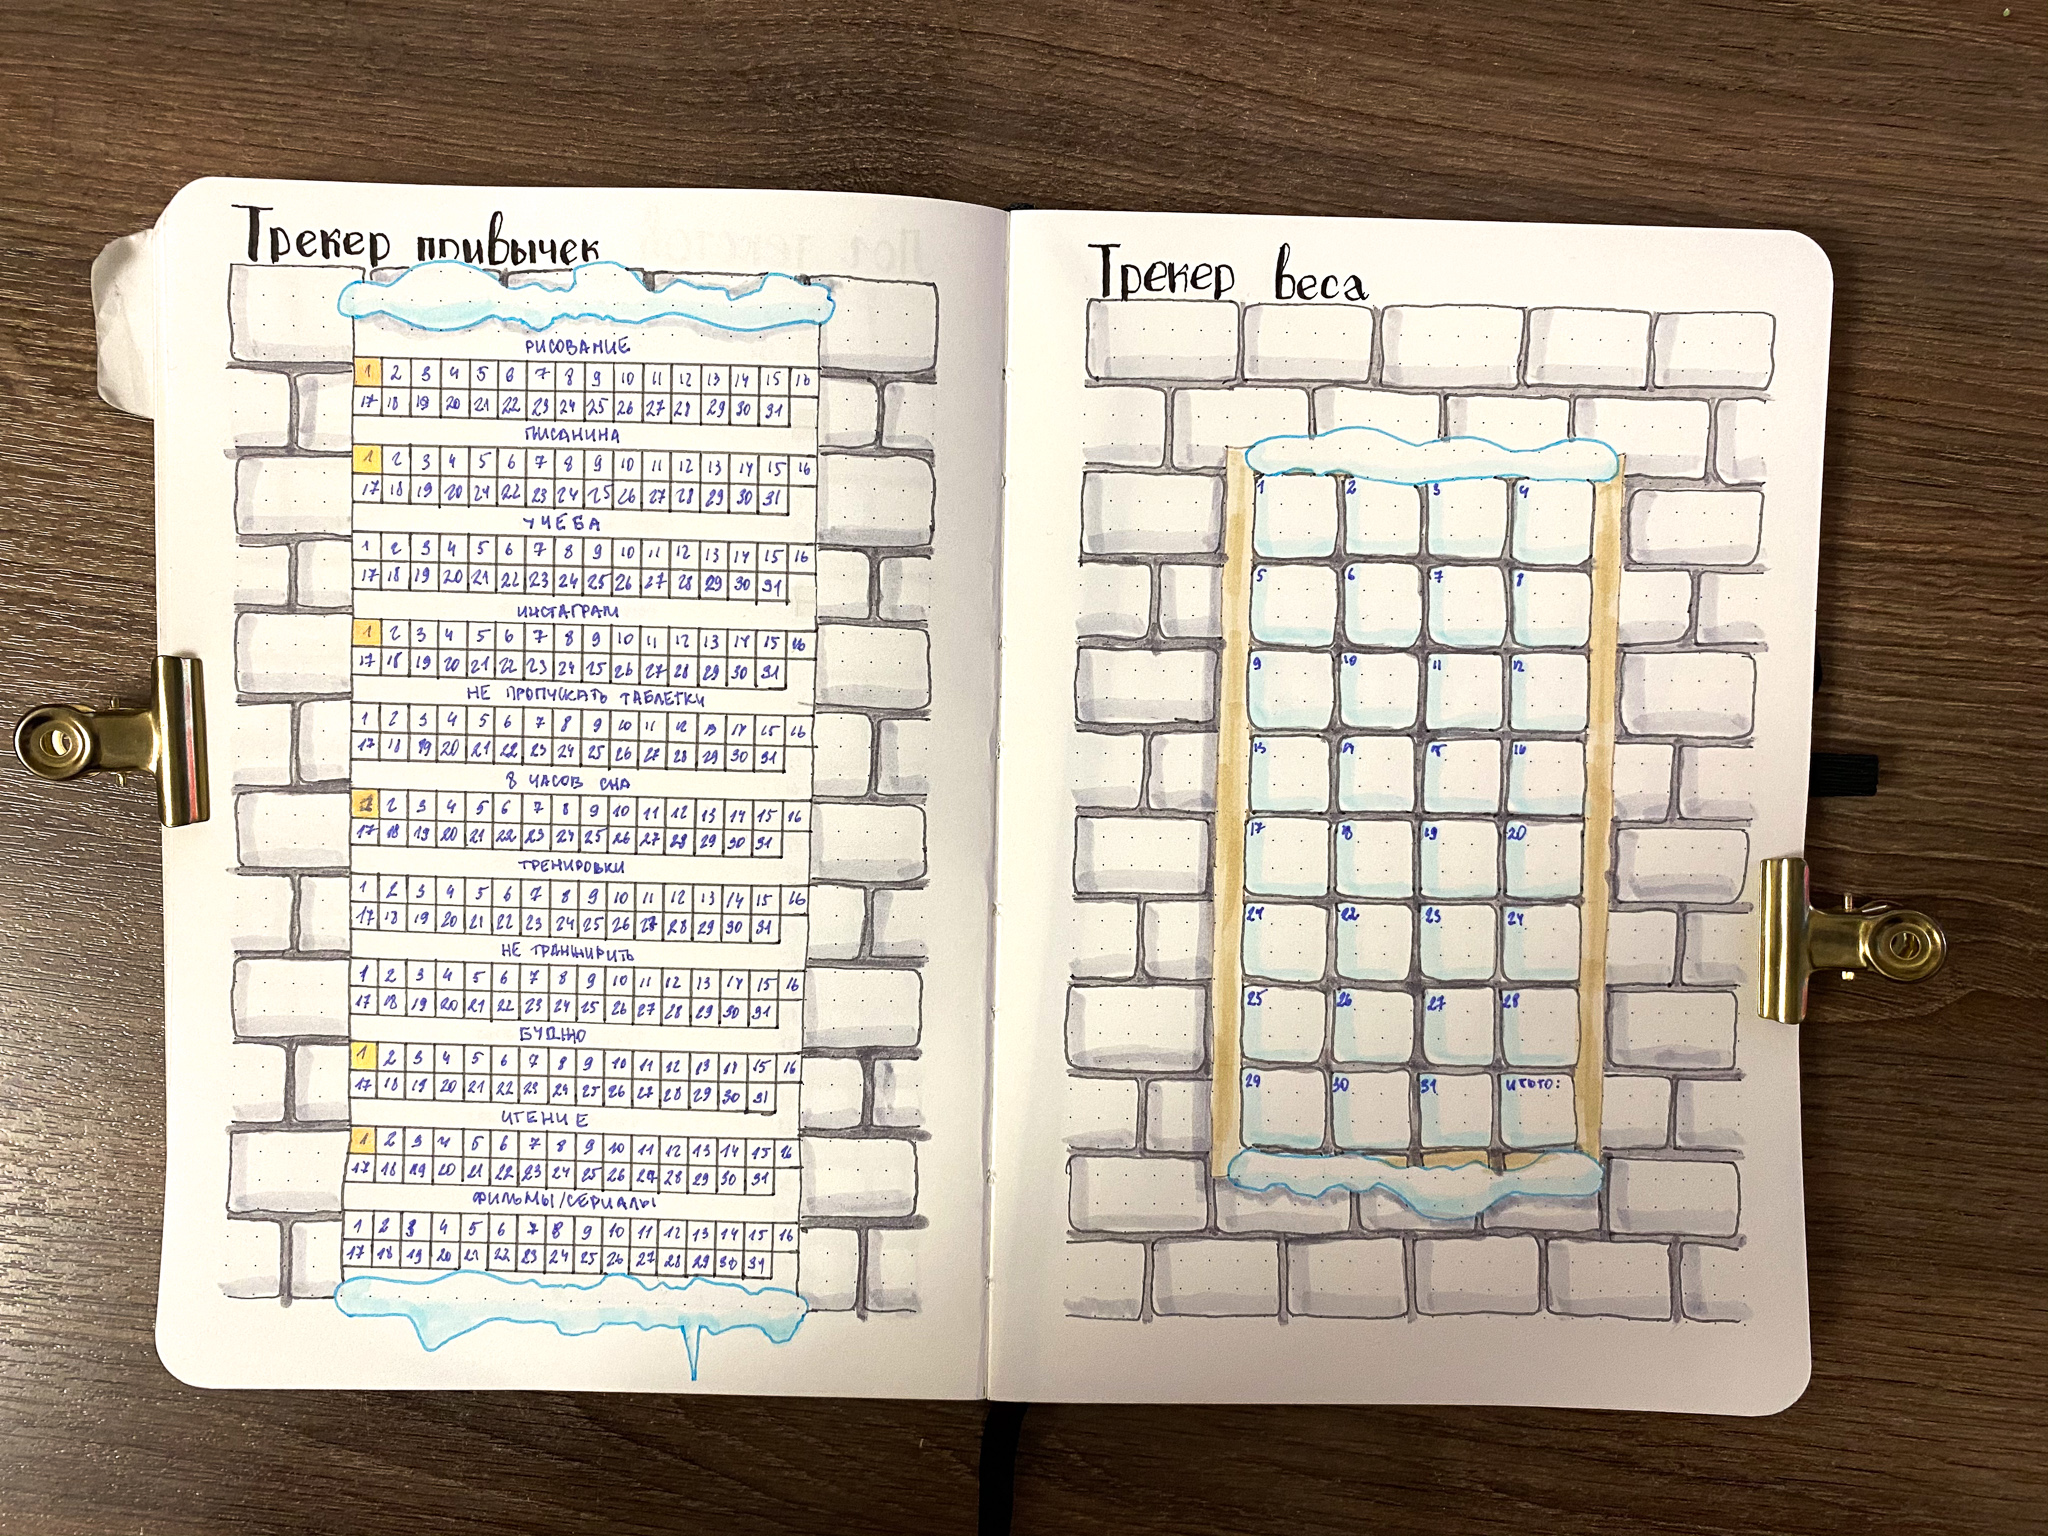 Трекер привычек
РИСОВАНИЕ
1 2 3 4 5 6 7 8 9 10 11 12 13 14 15 16
17 18 19 20 21 22 23 24 25 26 27 28 29 30 31
ПИСАНИНА
1 2 3 4 5 6 7 8 9 10 11 12 13 14 15 16
17 18 19 20 21 22 23 24 25 26 27 28 29 30 31
УЧЕБА
1 2 3 4 5 6 7 8 9 10 11 12 13 14 15 16
17 18 19 20 21 22 23 24 25 26 27 28 29 30 31
ИНСТАГРАМ
1 2 3 4 5 6 7 8 9 10 11 12 13 14 15 16
17 18 19 20 21 22 23 24 25 26 27 28 29 30 31
НЕ ПРОПУСКАТЬ ТАБЛЕТКИ
1 2 3 4 5 6 7 8 9 10 11 12 13 14 15 16
17 18 19 20 21 22 23 24 25 26 27 28 29 30 31
8 ЧАСОВ СНА
1 2 3 4 5 6 7 8 9 10 11 12 13 14 15 16
17 18 19 20 21 22 23 24 25 26 27 28 29 30 31
ТРЕНИРОВКИ
1 2 3 4 5 6 7 8 9 10 11 12 13 14 15 16
17 18 19 20 21 22 23 24 25 26 27 28 29 30 31
НЕ ТРАНЖИРИТЬ
1 2 3 4 5 6 7 8 9 10 11 12 13 14 15 16
17 18 19 20 21 22 23 24 25 26 27 28 29 30 31
БУДЖО
1 2 3 4 5 6 7 8 9 10 11 12 13 14 15 16
17 18 19 20 21 22 23 24 25 26 27 28 29 30 31
ЧТЕНИЕ
1 2 3 4 5 6 7 8 9 10 11 12 13 14 15 16
17 18 19 20 21 22 23 24 25 26 27 28 29 30 31
ФИЛЬМЫ/СЕРИАЛЫ
1 2 3 4 5 6 7 8 9 10 11 12 13 14 15 16
17 18 19 20 21 22 23 24 25 26 27 28 29 30 31
Трекер веса
1 2 3 4
5 6 7 8
9 10 11 12
13 14 15 16
17 18 19 20
21 22 23 24
25 26 27 28
29 30 31 ИТОГО: